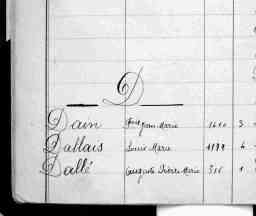 D
Dain Jean Marie 1610 3
Dallais Louis Marie 1199 4
Dallé Auguste Pierre Marie 316 1